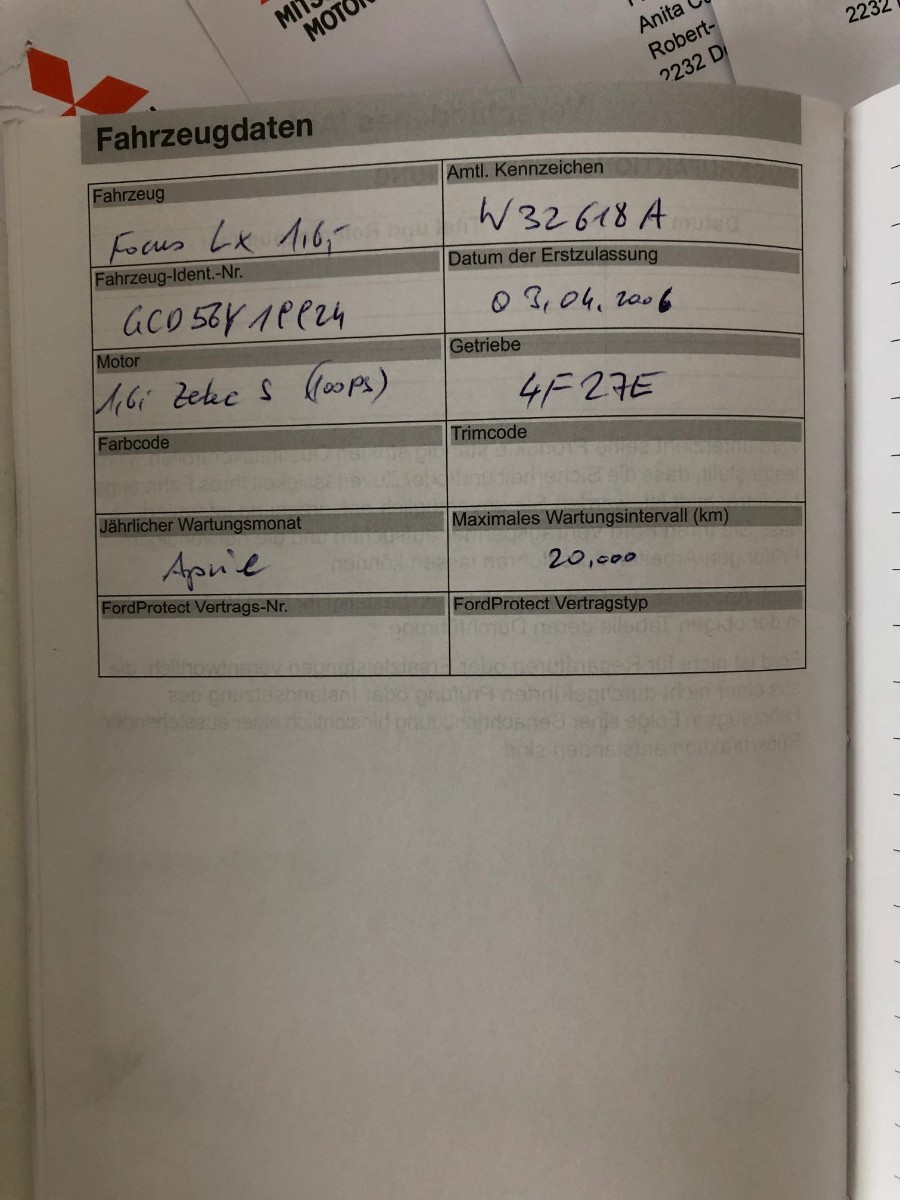 MOTOR
Anita
Robert-
2232 D
2232
Fahrzeugdaten
Fahrzeug
Focus LX 1,6i
Amtl. Kennzeichen
W 32618 A
Fahrzeug-Ident.-Nr.
Datum der Erstzulassung
03.04.2006
Motor
1,6i Zetec S (100PS)
Getriebe
4F27E
Farbcode
Trimcode
Jährlicher Wartungsmonat
April
Maximales Wartungsintervall (km)
20.000
FordProtect Vertrags-Nr.
FordProtect Vertragstyp